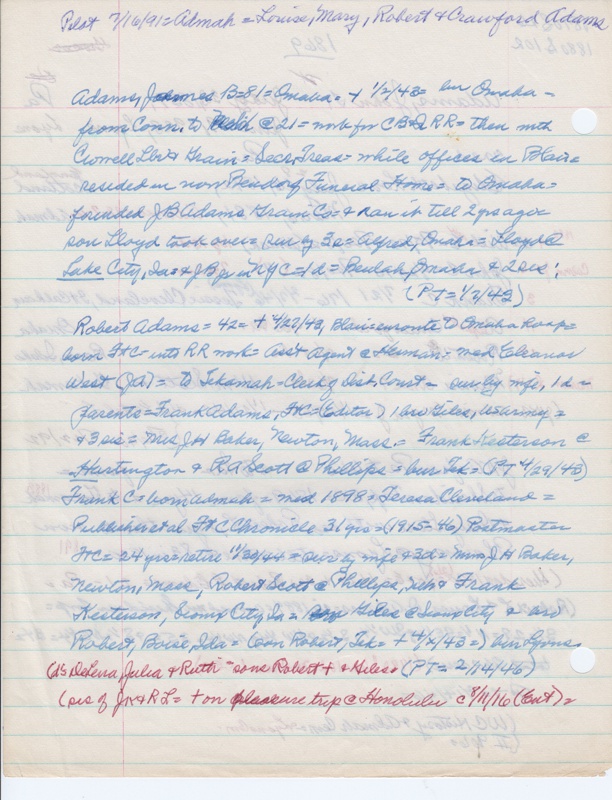 Pilot 7/16/91 = Admah = Louise, Mary, Robert & Crawford Adams
1369
Adams, James B = 81 = Omaha = + 1/2/43 = bur Omaha =
from Conn. to @ 21 = work for CB&Q RR = then with
Crowell Lbr & Grain = Secr, Treas = while offices in Blair =
resided in now Bendorf Funeral Home = to Omaha =
founded J B Adams Grain Co = & ran it till 2 yrs ago
son Lloyd took over = sur by 3s = Alfred, Omaha = Lloyd @
Lake City, Ia = & J B jr in NYC = 1d = Beulah, Omaha & 2 sis:
(PT = 1/7/43)
Robert Adams = 42 = + 4/22/43, Blair = enroute to Omaha hosp =
born FtC = into RR work = Asst Agent @ Herman = med Eleanor
West (Ia) = to Tekamah = Clerk of Dist. Court = sur by wife, 1d =
parents = Frank Adams, FtC = (Editor) 1 bro Giles, US Army =
& 3 sis = Mrs J H Baker, Newton, Mass. = Frank Kesterson @
Hartington & R A Scott @ Phillips = bur Tek = (PT 4/29/43)
Frank C = born Admah = med 1898 = Teresa Cleveland =
Publisher etal FtC Chronicle 31 yrs = (1915-46) Postmaster
FtC = 24 yrs = retire = sur by wife & 3d = Mrs J H Baker,
Newton, Mass, Robert Scott @ Phillips, & Frank
Kesterson, Sioux City, Ia = Giles @ Sioux City & bro
Robert, Boise, Ida = (son Robert, Tek = + 43 =) bur Lyons
(d's DeLena, Julia & Ruth = sons Robert + & Giles = (PT = 2/14/46)
(sis of J R & R L = + on pleasure trip @ Honolulu c 8/11/16 (Ent) =